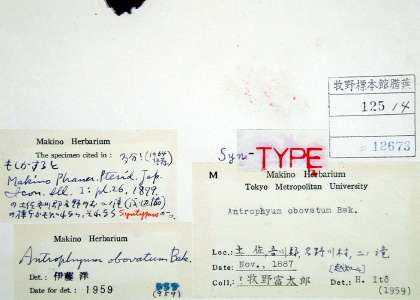 牧野標本館腊葉
125/4
12673
Syn-TYPE
Makino Herbarium
The specimen cited in :
もしかすると
Makino Phaner. Pterid. Jap.
Icon. Ill. I: pl. 26, 1899.
Syntypus
Makino Herbarium
Antrophyum obovatum Bak.
Det.: 伊藤 洋
Date for det.: 1959
(1959)
M Makino Herbarium
Tokyo Metropolitan University
Antrophyum obovatum Bak.
Loc.: 土佐, 吾川郡, 名野川村, 二ノ滝
Date: Nov., 1887
Coll.: 牧野富太郎 Det.: H. Itô
(1959)